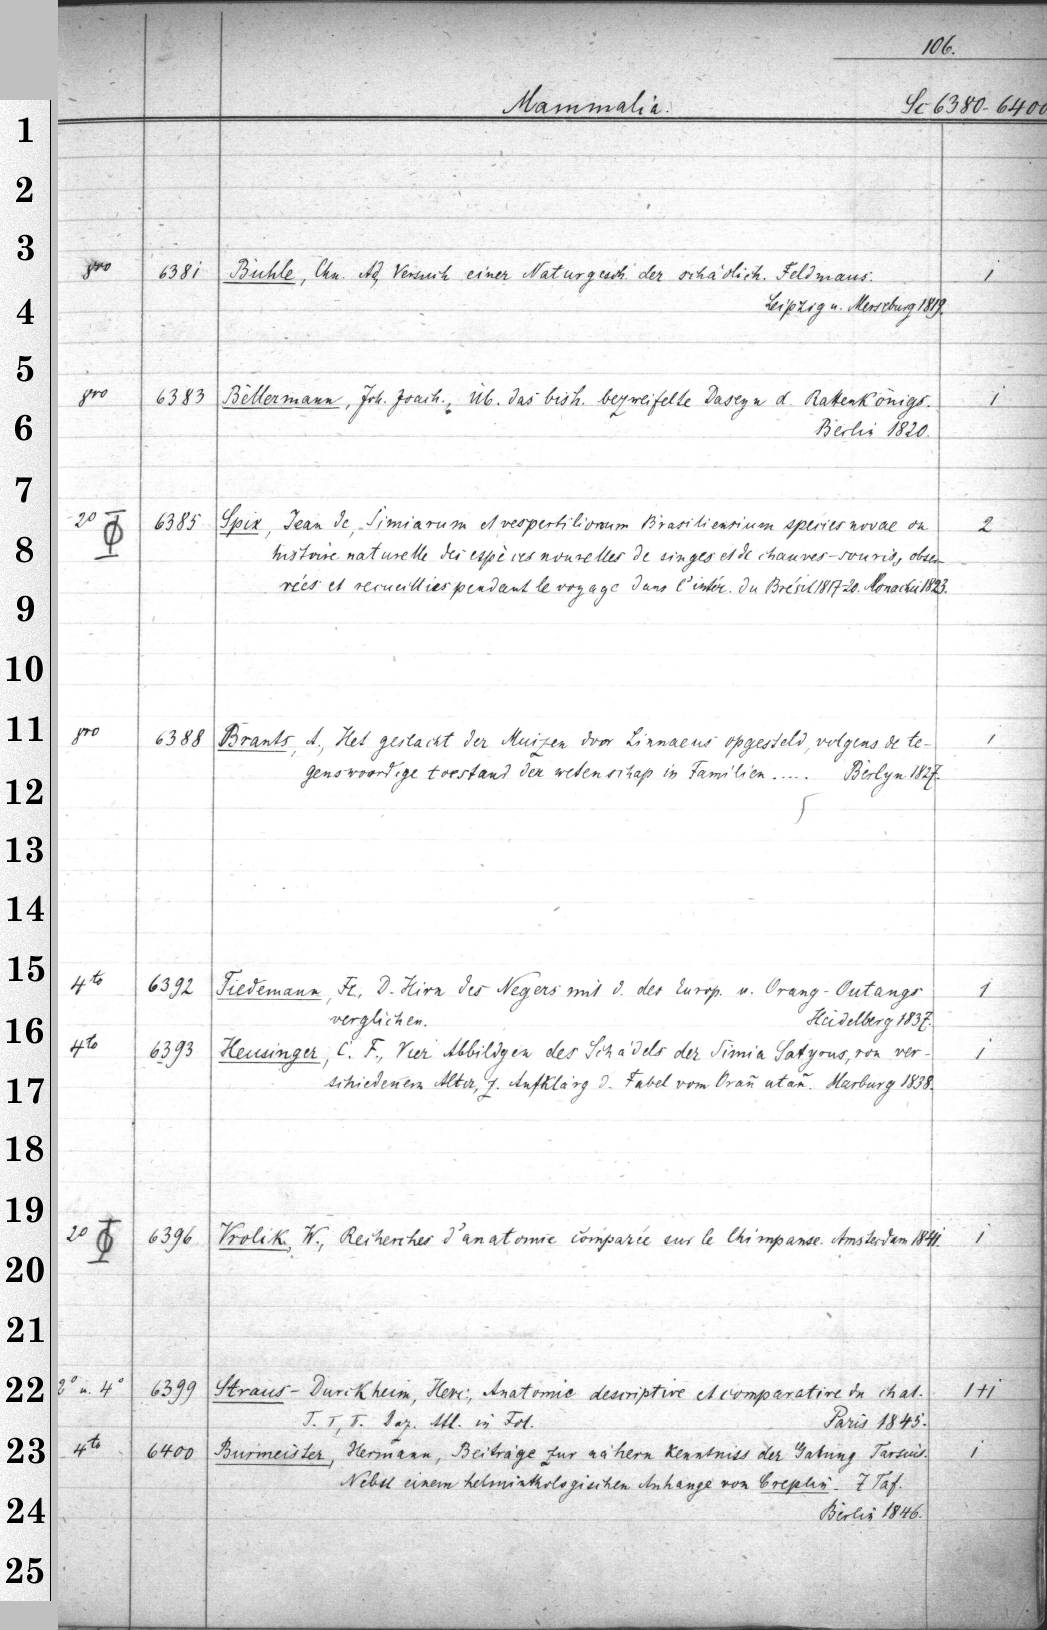 106.
Mammalia.
Sc 6380-6400
1
2
3
8vo 6381 Buhle, Chn. Ad, Versuch einer Naturgesch. der schädlich. Feldmaus. 1
Leipzig u. Merseburg 1819.
4
5
8vo 6383 Bellermann, Joh. Joach., Üb. das bish. bezweifelte Daseyn d. Rattenkönigs. 1
6
Berlin 1820.
7
2o Φ 6385 Spix, Jean de, Simiarum et vespertilionum Brasiliensium species novae ou 2
8
histoire naturelle des espèces nouvelles de singes et de chauves-souris, obser-
vées et recueillies pendant le voyage dans l'intér. du Brésil 1817-20. Monachii 1823.
9
10
11
8vo 6388 Brants, A., Het geslacht der Muizen door Linnaeus opgesteld, volgens de te- 1
genswoordige toestand der wetenschap in Familien ..... Berlyn 1827.
12
13
14
15
4to 6392 Tiedemann, Fr., D. Hirn des Negers mit d. des Europ. u. Orang-Outangs 1
verglichen. Heidelberg 1837.
16
4to 6393 Heusinger, C. F., Vier Abbildgen des Schädels der Simia Satyrus, von ver- 1
schiedenem Alter, z. Aufklärg d. Fabel vom Oran̄ utan̄. Marburg 1838.
17
18
19
2o Φ 6396 Vrolik, W., Recherches d'anatomie comparée sur le Chimpanse. Amsterdam 1841. 1
20
21
22
2o u. 4o 6399 Straus-Durckheim, Herc., Anatomie descriptive et comparative du chat. 1+1
T. I, II. Daz. Atl. in Fol. Paris 1845.
23
4to 6400 Burmeister, Hermann, Beiträge zur nähern Kenntniss der Gatung Tarsius. 1
Nebst einem helminthologischen Anhange von Creplin. 7 Taf.
24
Berlin 1846.
25